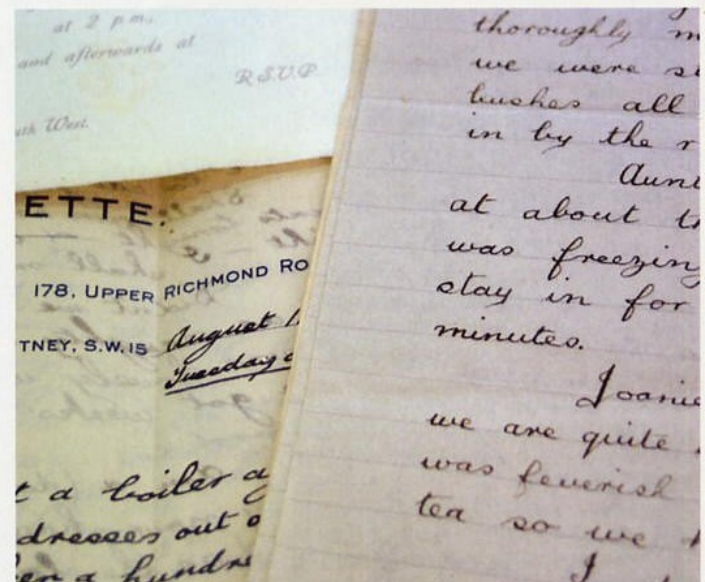 at 2 p.m.,
and afterwards at
R.S.V.P
uth West.
ETTE.
178, UPPER RICHMOND RO
TNEY, S.W.15
August 1
Tuesday
t a boiler a
dresses out o
a hundre
thoroughly m
we were s
bushes all
in by the r
Aunt
at about th
was freezing
stay in for
minutes.
Joanie
we are quite
was feverish
tea so we
I